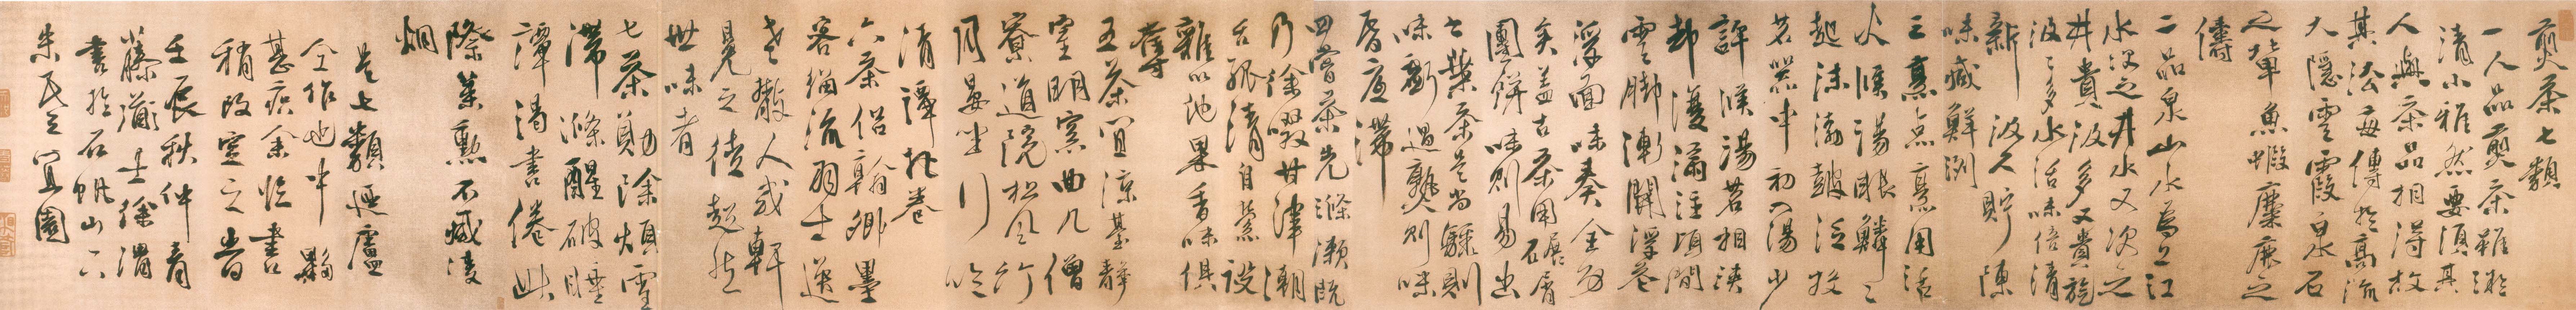 煎茶七類
一人品煎茶雖凝
清小雅然要須其
人與茶品相得故
其法每傳於高流
大隱雲霞泉石
之輩魚蝦麋鹿之
儔
二品泉山水為上江
水次之井水又次之
井貴汲多又貴旋
汲汲多水活味倍清
新汲久貯陳
味減鮮洌
三烹點烹用活
火候湯眼鱗鱗
起沫渤鼓泛投
茗器中初入湯少
許候湯茗相浹
卻復滿注頃間
雲腳漸開浮花
浮面味奏全功
矣蓋古茶用碾屑
團餅味則易出
葉茶是尚驟則
味虧過熟則味
昏底滯
四嘗茶先滌漱既
乃徐啜甘津潮
舌孤清自縈設
雜以他果香味俱
奪
五茶宜涼臺靜
室明窗曲几僧
寮道院松風竹
月晏坐行吟
清譚把卷
六茶侶翰卿墨
客緇流羽士逸
老散人或軒
冕之徒超然
世味者
七茶勳除煩雪
滯滌醒破睡
譚渴書倦此
際策勳不減凌
烟
是七類乃盧
仝作也中夥
甚疾余臨書
稍改定之時
壬辰秋仲青
藤道士徐渭
書於石帆山下
朱氏之宜園